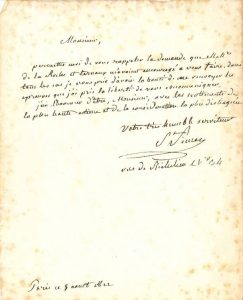 Monsieur,
permettez moi de vous rappeler la demande que M
de la Roche et m'avaient encouragé a vous faire, dans
tous les cas je vous prie d'avoir la bonté de me renvoyer les
épreuves que j'ai pris la liberté de vous communiquer
j'ai l'honneur d'être, Monsieur, avec les sentiments de
la plus haute estime et de la considération la plus distinguée
Votre très humble serviteur
rue de Richelieu N° 34
Paris ce 9 aout